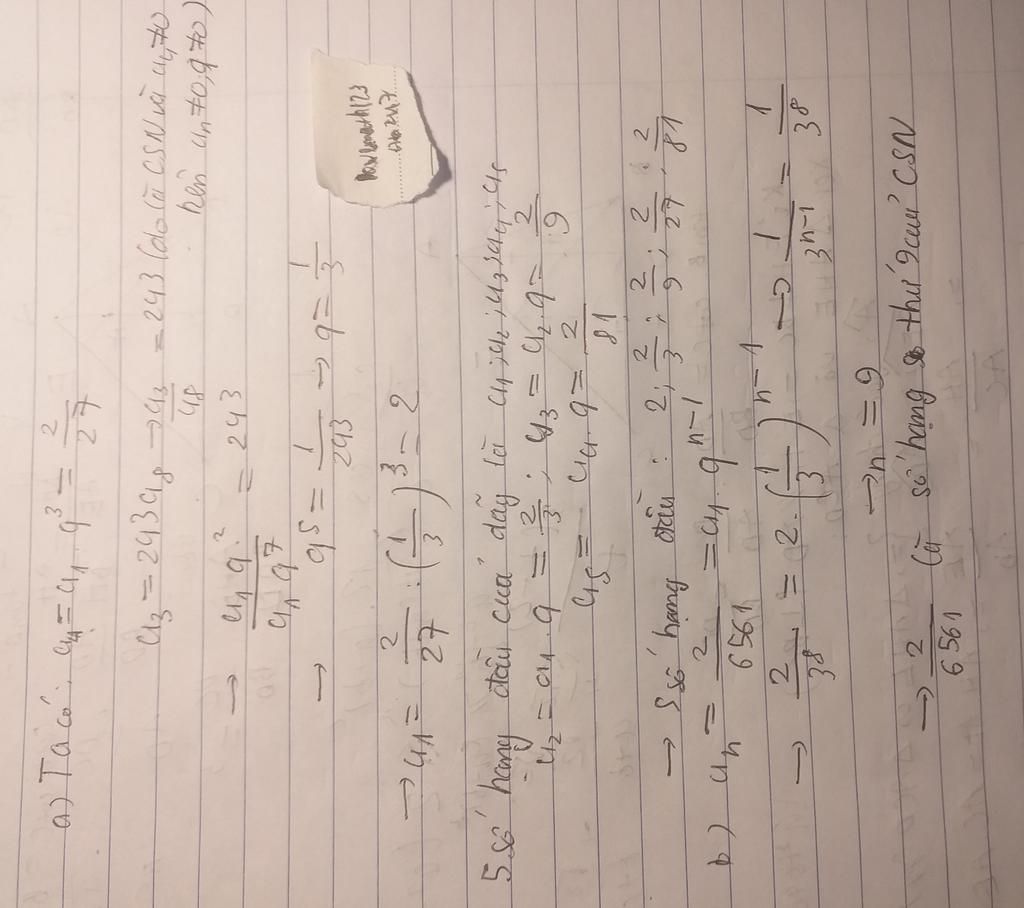 a) Ta có: u₄ = u₁ . q³ = 2/27
u₃ = 243 u₈ → u₃/u₈ = 243 (do là CSN và u₄ ≠ 0
nên uₙ ≠ 0, q ≠ 0)
→ u₁q²/u₁q⁷ = 243
→ q⁵ = 1/243 → q = 1/3
→ u₁ = 2/27 : (1/3)³ = 2
5 số hạng đầu của dãy là u₁; u₂; u₃; u₄; u₅
u₂ = u₁ . q = 2/3 ; u₃ = u₂ q = 2/9
u₅ = u₄ . q = 2/81
→ 5 số hạng đầu : 2; 2/3 ; 2/9 ; 2/27 ; 2/81
b) uₙ = 2/6561 = u₁ . qⁿ⁻¹
→ 2/3⁸ = 2 . (1/3)ⁿ⁻¹ → 1/3ⁿ⁻¹ = 1/3⁸
→ n = 9
→ 2/6561 là số hạng thứ 9 của CSN